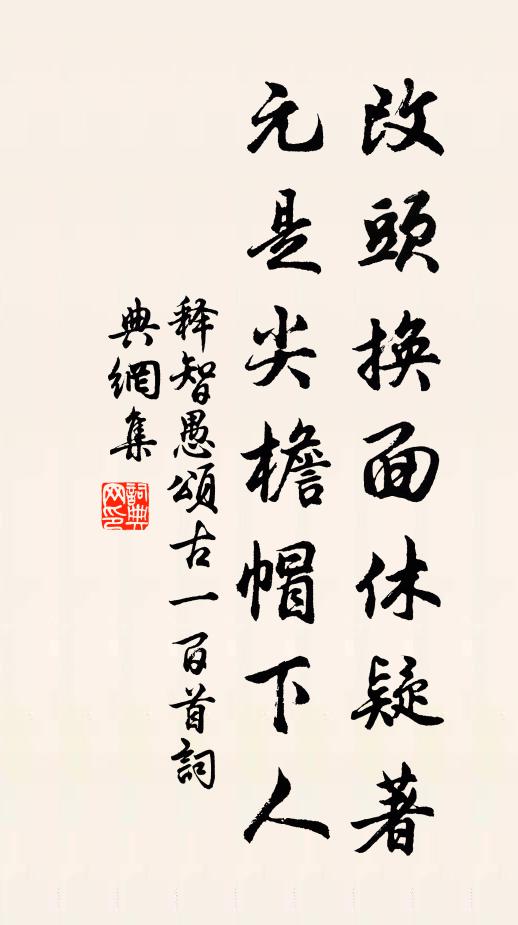 改頭換面休疑著
元是尖檐帽下人
释智愚頌古一百首詞
典網集
詞典
网印